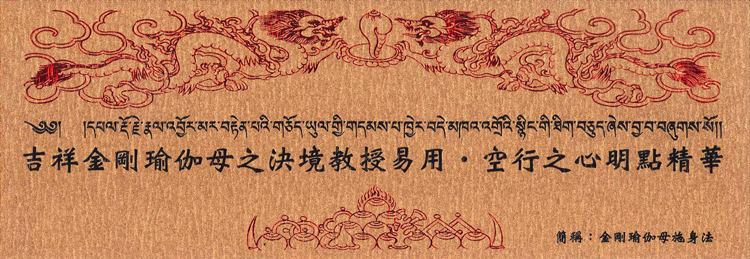 ༄༅། །དཔལ་རྡོ་རྗེ་རྣལ་འབྱོར་མར་བརྟེན་པའི་གཅོད་ཡུལ་གྱི་གདམས་པ་ཁྱེར་བདེ་མཁའ་འགྲོའི་སྙིང་གི་ཐིག་བཅུད་ཞེས་བྱ་བ་བཞུགས་སོ།།
吉祥金剛瑜伽母之決境教授易用·空行之心明點精華
簡稱：金剛瑜伽母施身法